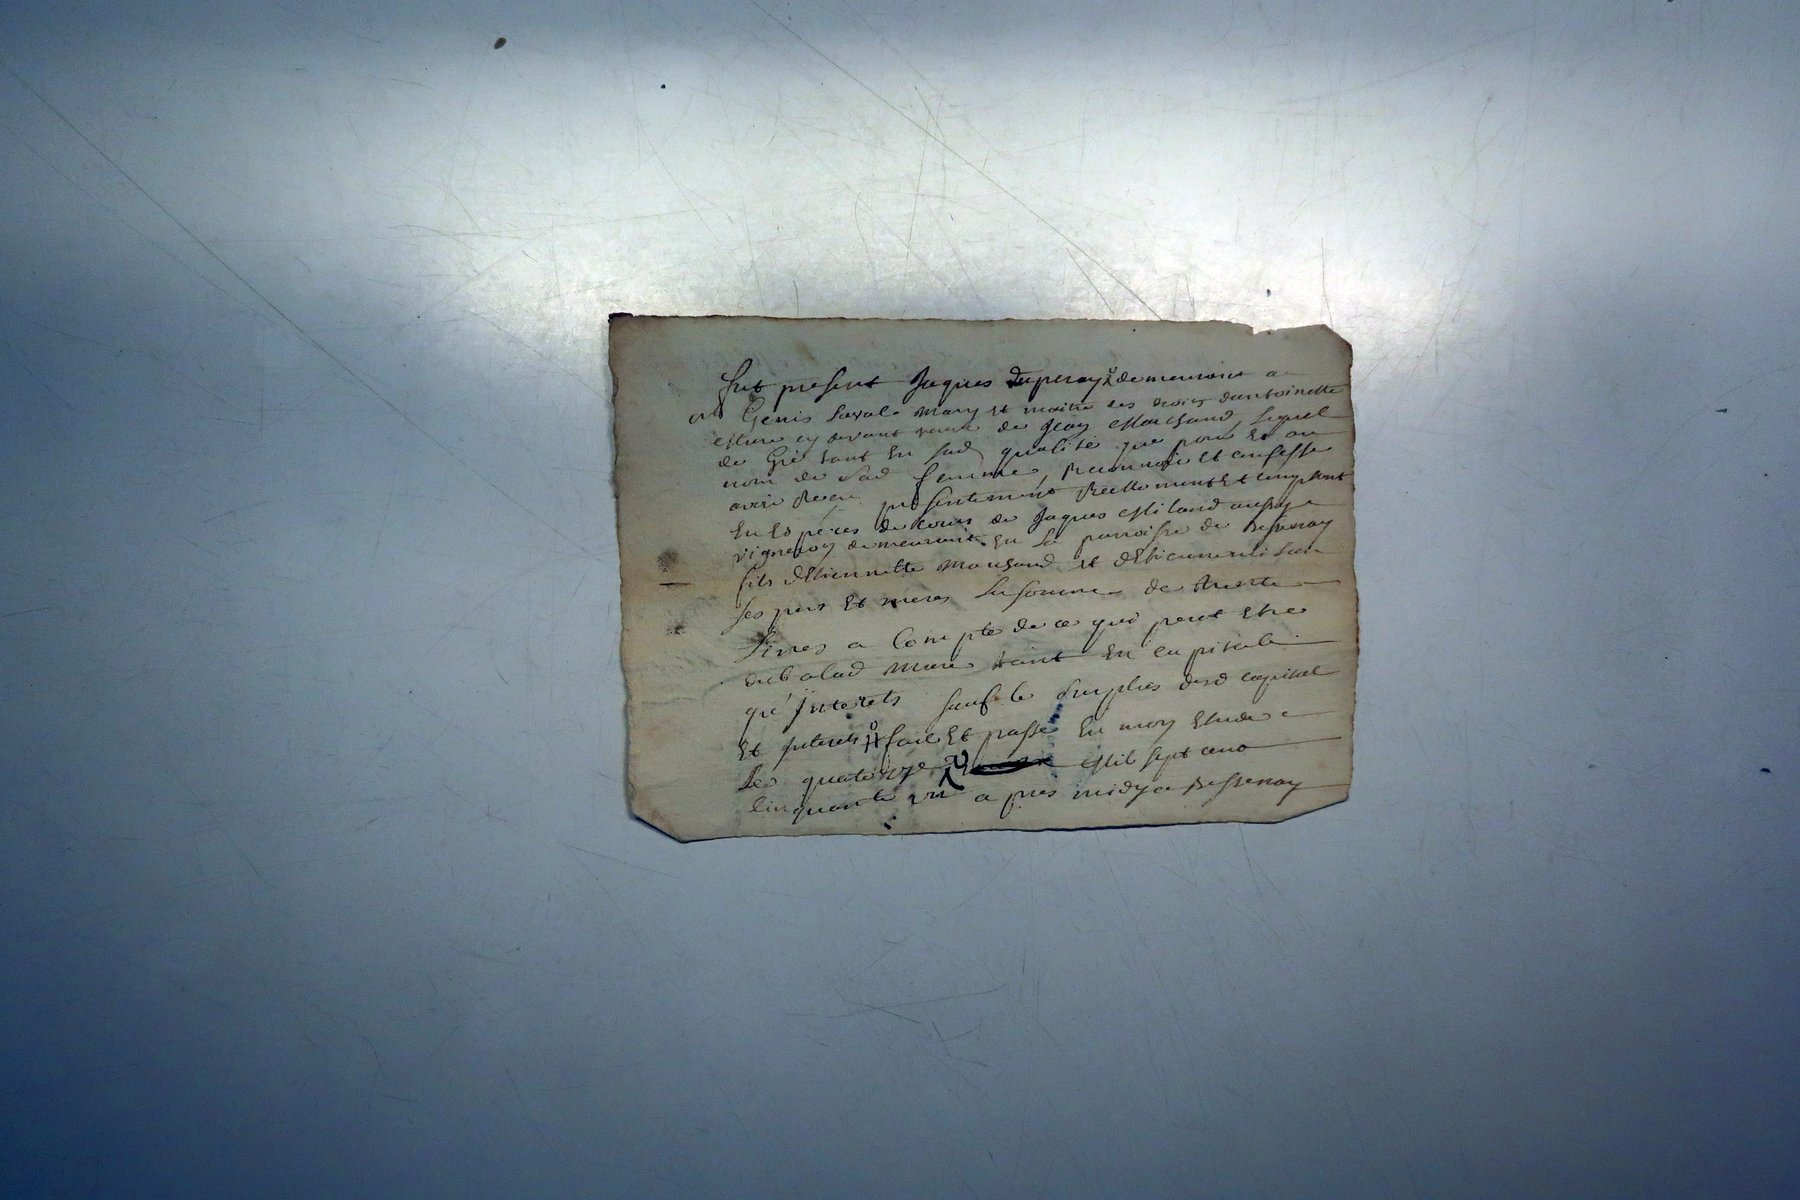 fut present Jaques Duperay demeurant a
Genis Laval mary et maitre des droits dantoinette
cy devant veuve de Jean Marchand, Lequel
de Gré tant en Sad qualité que pour et au
nom de Sad femme, Reconnoit et confesse
avoir Receu presentement Reellement et comptant
En Espéces de cours de Jaques Milland
vigneron demeurant En La parroisse de Bessenay
fils dEtiennette Marchand et dEtienne
Ses pere et mere La somme de trente
Livres a Compte de ce qui peut Etre
dub alad Mure tant En capital
qu'Interets Sauf le Surplus desd capital
Et Interets fait Et passé En mon Etude
Le quatorze Mil sept cens
Cinquante un apres midy a Bessenay